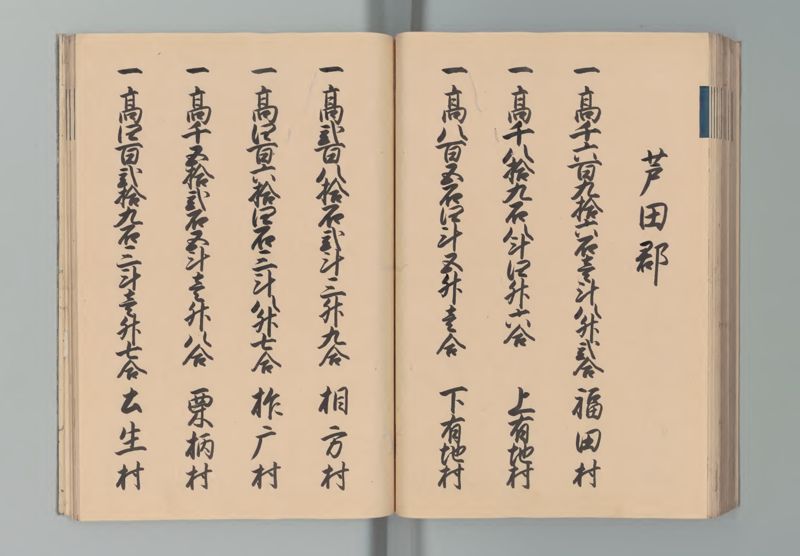 芦田郡
一高千六百九拾六石壱斗八升弐合 福田村
一高千八拾九石八斗四升六合 上有地村
一高八百五石四斗五升壱合 下有地村
一高弐百八拾石弐斗三升九合 相方村
一高四百六拾四石三斗八升七合 柞广村
一高千五拾弐石五斗壱升八合 栗柄村
一高四百弐拾九石三斗壱升七合 土生村